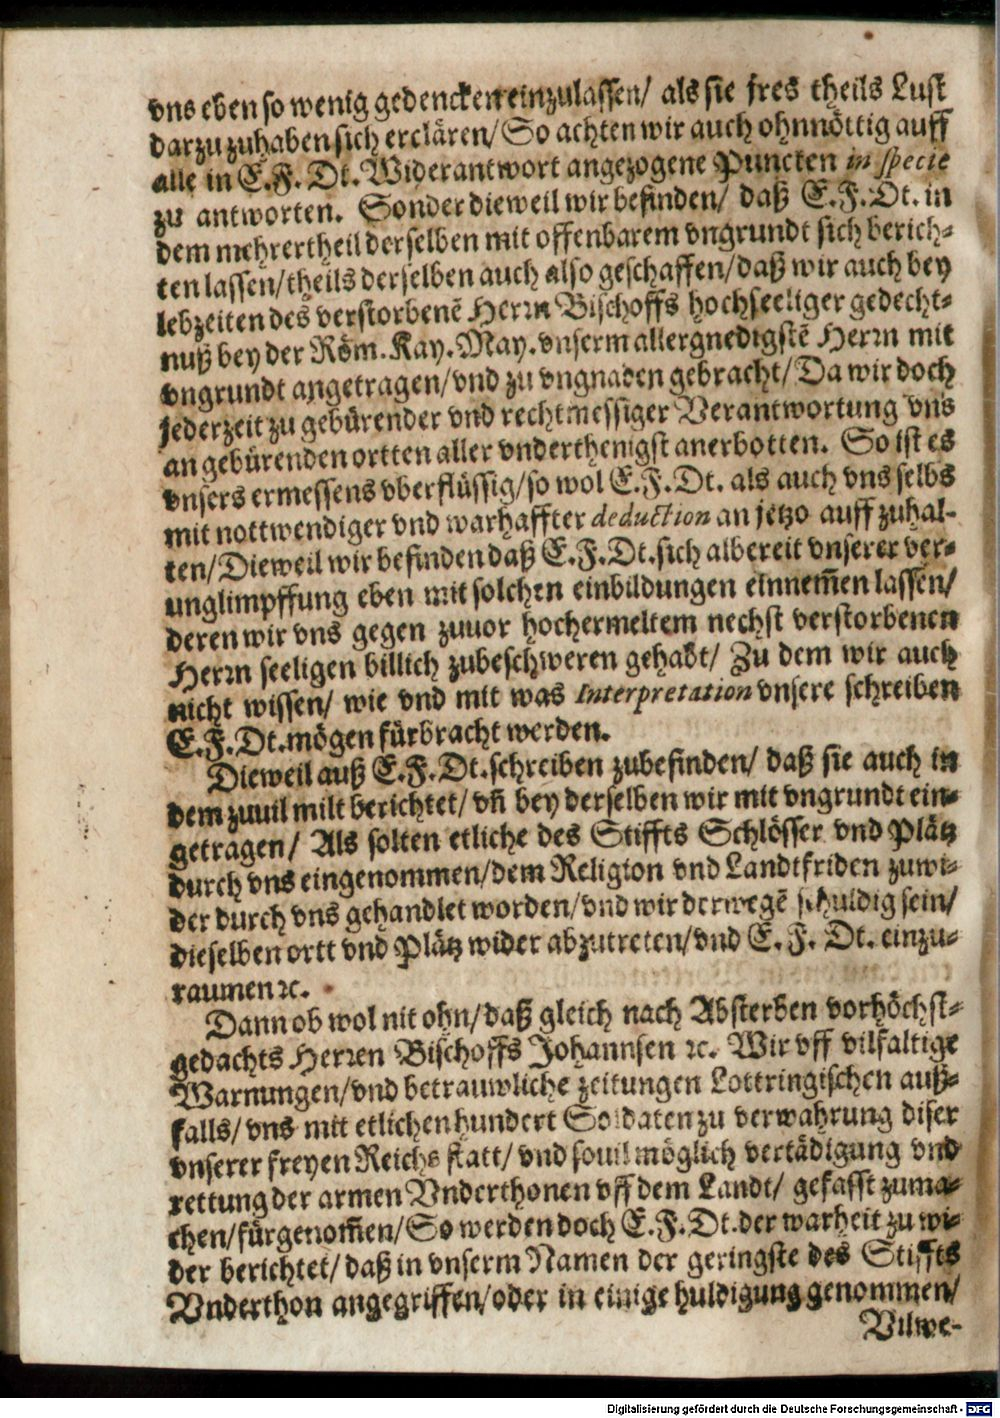 vns eben so wenig gedencken einzulassen/ als sie jres theils Lust
darzu zuhaben sich erclären/ So achten wir auch ohnnöttig auff
alle in E.F. Dt. Widerantwort angezogene Puncten in specie
zu antworten. Sonder dieweil wir befinden/ daß E.F.Dt. in
dem mehrertheil derselben mit offenbarem vngrundt sich berich-
ten lassen/theils derselben auch also geschaffen/daß wir auch bey
lebzeiten des verstorbenē Herrn Bischoffs hochseeliger gedecht-
nuß bey der Röm. Kay. May. vnserm allergnedigstē Herrn mit
vngrundt angetragen/vnd zu vngnaden gebracht/Da wir doch
jederzeit zu gebürender vnd rechtmessiger Verantwortung vns
an gebürenden ortten aller vnderthenigst anerbotten. So ist es
vnsers ermessens vberflüssig/so wol E.F.Dt. als auch vns selbs
mit nottwendiger vnd warhaffter deduction an jetzo auff zuhal-
ten/Dieweil wir befinden daß E.F.Dt.sich albereit vnserer ver-
unglimpffung eben mit solchen einbildungen einnem̃en lassen/
deren wir vns gegen zuuor hochermeltem nechst verstorbenen
Herrn seeligen billich zubeschweren gehabt/ Zu dem wir auch
nicht wissen/ wie vnd mit was Interpretation vnsere schreiben
E.F.Dt.mögen fürbracht werden.
Dieweil auß E.F.Dt.schreiben zubefinden/ daß sie auch in
dem zuuil milt berichtet/ vñ bey derselben wir mit vngrundt ein-
getragen/ Als solten etliche des Stiffts Schlösser vnd Plätz
durch vns eingenommen/dem Religion vnd Landtfriden zuwi-
der durch vns gehandlet worden/vnd wir derwegē schuldig sein/
dieselben ortt vnd Plätz wider abzutreten/vnd E. F. Dt. einzu-
raumen ꝛc.
Dann ob wol nit ohn/daß gleich nach Absterben vorhöchst-
gedachts Herren Bischoffs Johannsen ꝛc. Wir vff vilfaltige
Warnungen/vnd betrauwliche zeitungen Lottringischen auß-
falls/ vns mit etlichen hundert Soldaten zu verwahrung diser
vnserer freyen Reichs statt/ vnd souil möglich vertädigung vnd
rettung der armen Vnderthonen vff dem Landt/ gefasst zuma-
chen/fürgenom̃en/So werden doch E.F.Dt.der warheit zu wi-
der berichtet/ daß in vnserm Namen der geringste des Stiffts
Vnderthon angegriffen/oder in einige huldigung genommen/
Vilwe-
Digitalisierung gefördert durch die Deutsche Forschungsgemeinschaft - DFG